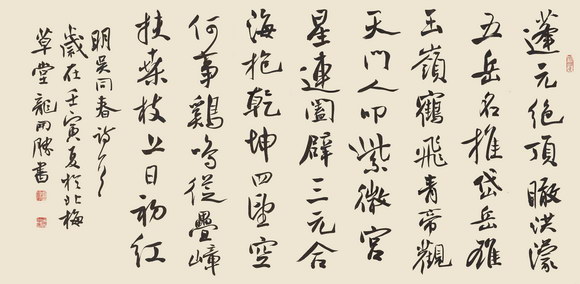 蓬元绝顶瞰洪濛
五岳名推岱岳雄
玉嶺鶴飛青帝觀
天门人叩紫微宫
星連闔闢三元合
海抱乾坤四望空
何事鷄鳴從疊嶂
扶桑枝上日初红
明吴同春诗
歲在壬寅夏於北梅
草堂龍開勝書